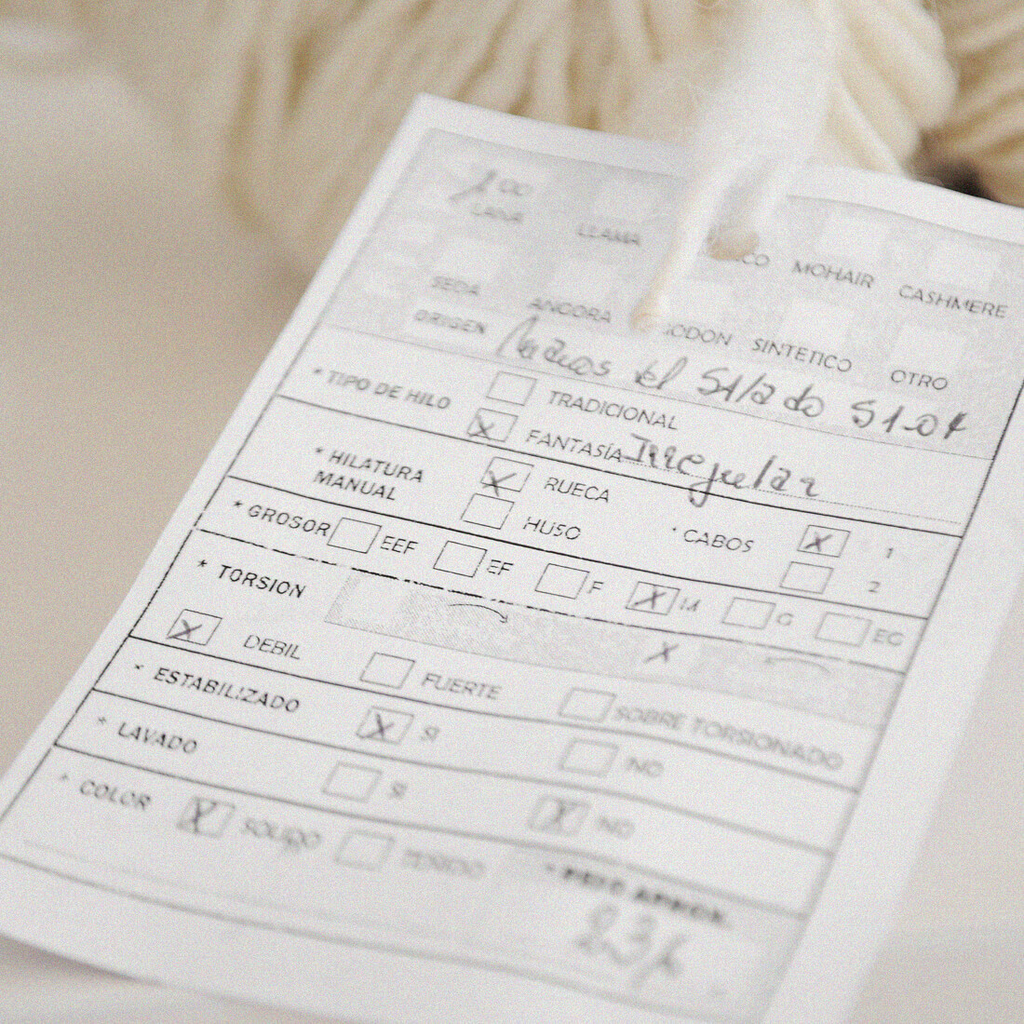 100
LANA LLAMA CO MOHAIR CASHMERE
SEDA ANGORA ODON SINTETICO OTRO
ORIGEN del S1.04
* TIPO DE HILO TRADICIONAL
X FANTASÍA Irregular
* HILATURA MANUAL X RUECA
HUSO * CABOS X 1
2
* GROSOR EEF EF F X M G EG
* TORSION X
X DEBIL FUERTE SOBRE TORSIONADO
* ESTABILIZADO X SI NO
* LAVADO SI X NO
* COLOR X SOLIDO TENIDO
* PESO APROX.